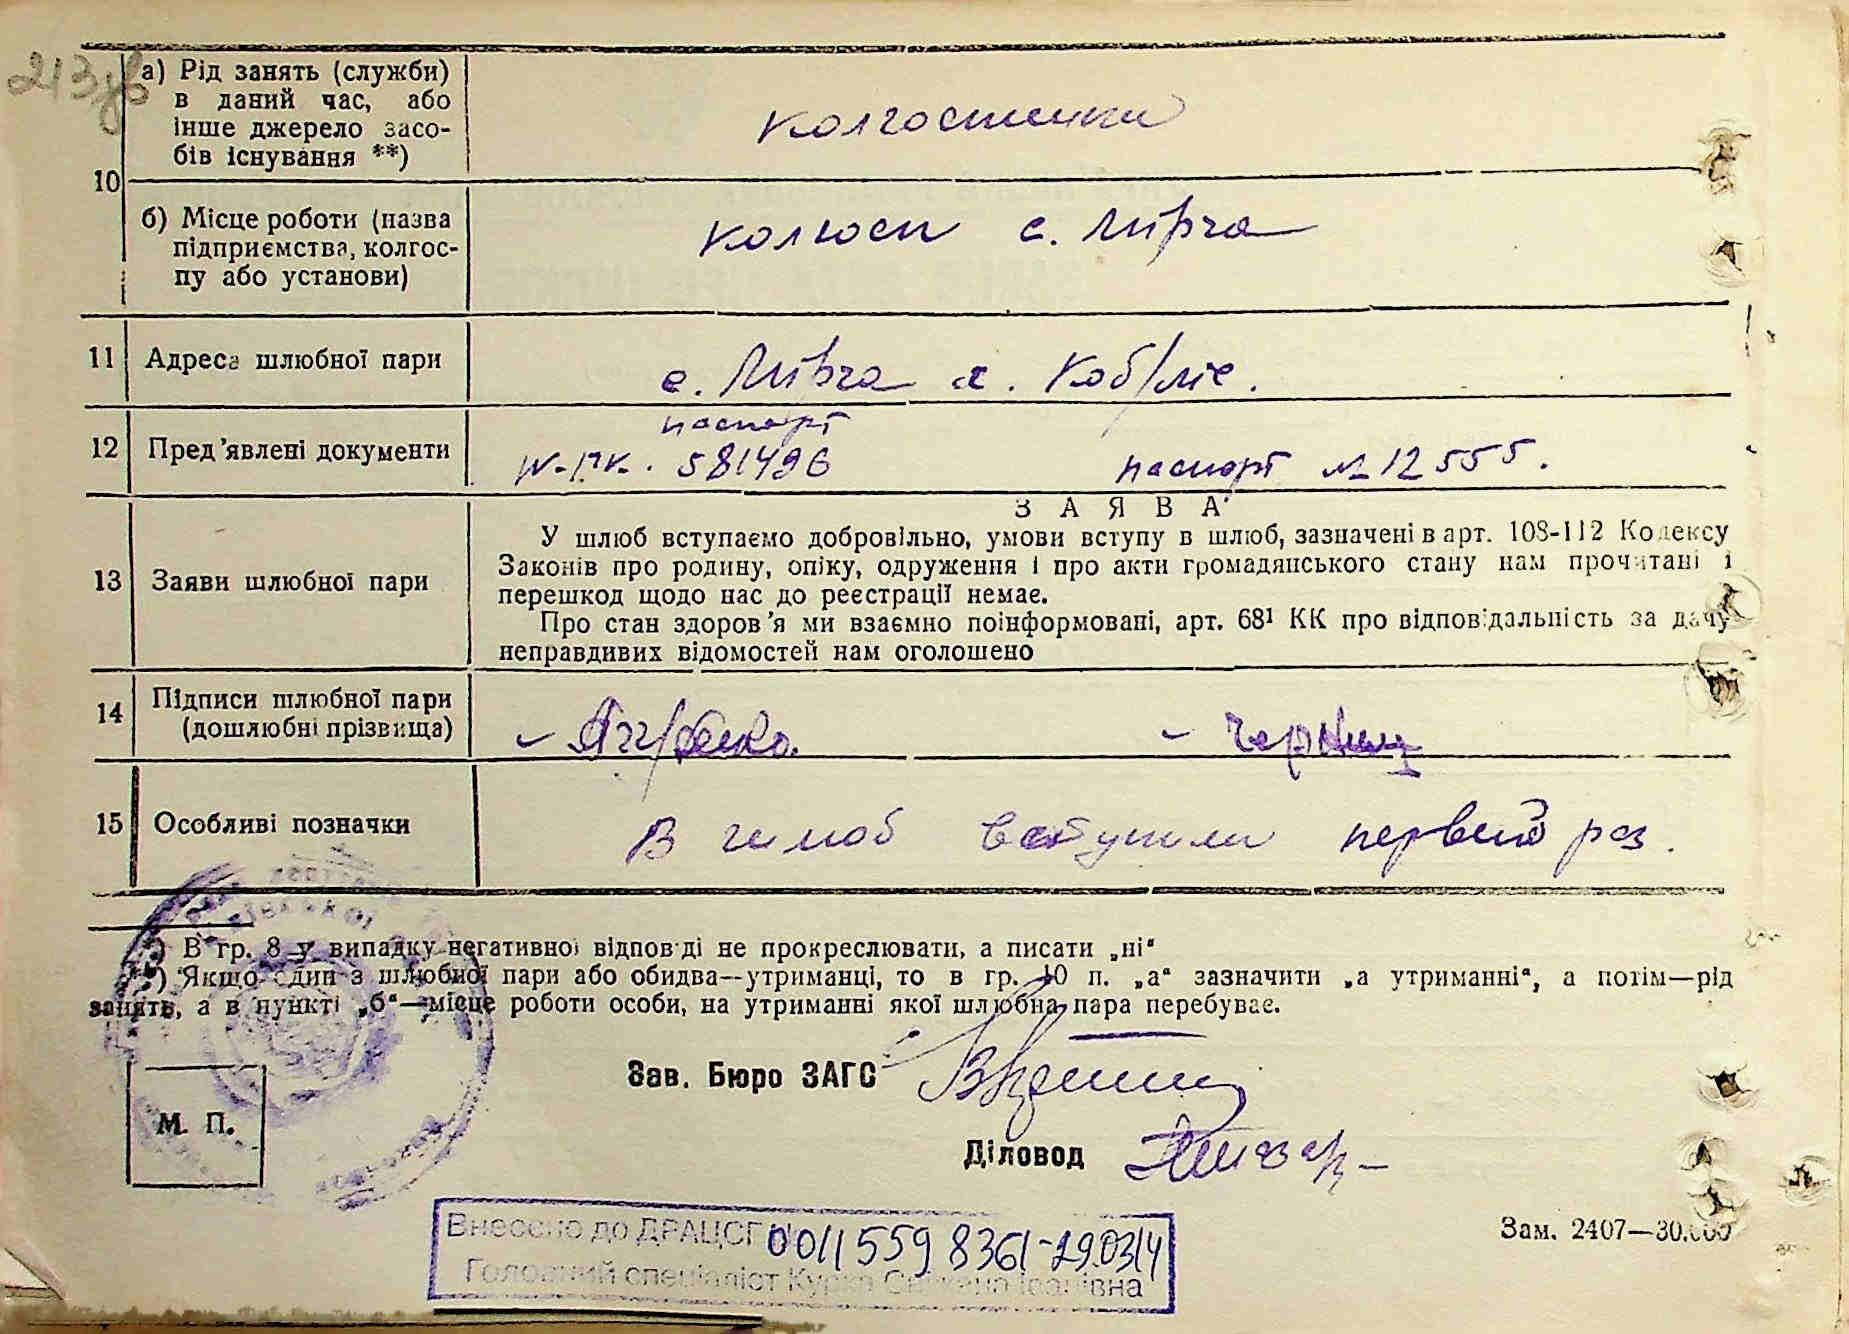 213зв
а) Рід занять (служби)
в даний час, або
інше джерело засо-
бів існування **)
колгоспники
10
б) Місце роботи (назва
підприємства, колгос-
пу або установи)
колгосп с. Мирча
11 Адреса шлюбної пари
с. Мирча х. Коб/ліс.
паспорт
12 Пред'явлені документи
581496 паспорт № 12555.
З А Я В А
У шлюб вступаємо добровільно, умови вступу в шлюб, зазначені в арт. 108-112 Кодексу
Законів про родину, опіку, одруження і про акти громадянського стану нам прочитані і
13 Заяви шлюбної пари
перешкод щодо нас до реєстрації немає.
Про стан здоров'я ми взаємно поінформовані, арт. 68¹ КК про відповідальність за дачу
неправдивих відомостей нам оголошено
14 Підписи шлюбної пари
(дошлюбні прізвища)
15 Особливі позначки
В шлюб вступили первий раз.
*) В гр. 8 у випадку негативної відповіді не прокреслювати, а писати „ні“
**) Якщо один з шлюбної пари або обидва—утриманці, то в гр. 10 п. „а“ зазначити „а утриманні“, а потім—рід
занять, а в пункті „б“—місце роботи особи, на утриманні якої шлюбна пара перебуває.
Зав. Бюро ЗАГС
М. П.
Діловод
Внесено до ДРАЦСГ 0011559 8361-29.03.14
Головний спеціаліст Світлана Іванівна
Зам. 2407—30.000